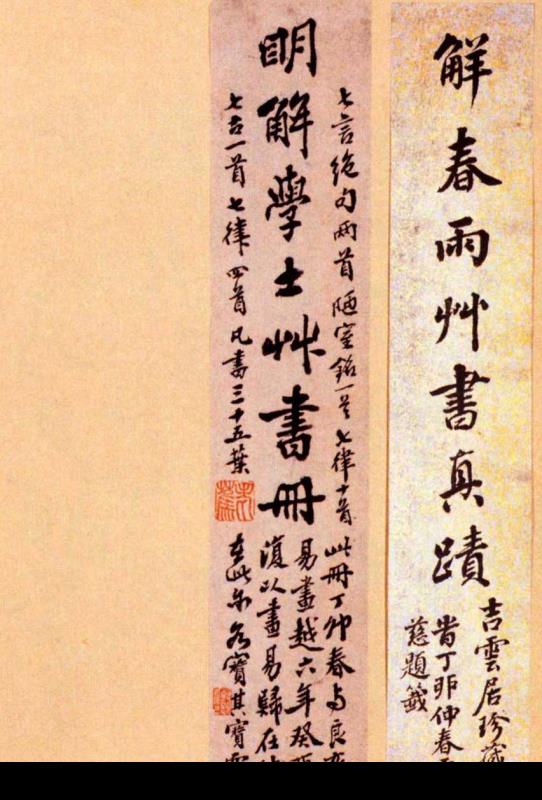 解春雨艸書真蹟
吉雲居珍藏
耑丁卯仲春
慈題籤
七言絶句兩首陋室銘一首七律十首
明解學士艸書冊
七古一首七律四首凡書三十五葉
此冊丁卯春与良
易畫越六年癸酉
復以畫易歸在
在此尔各寶其寶